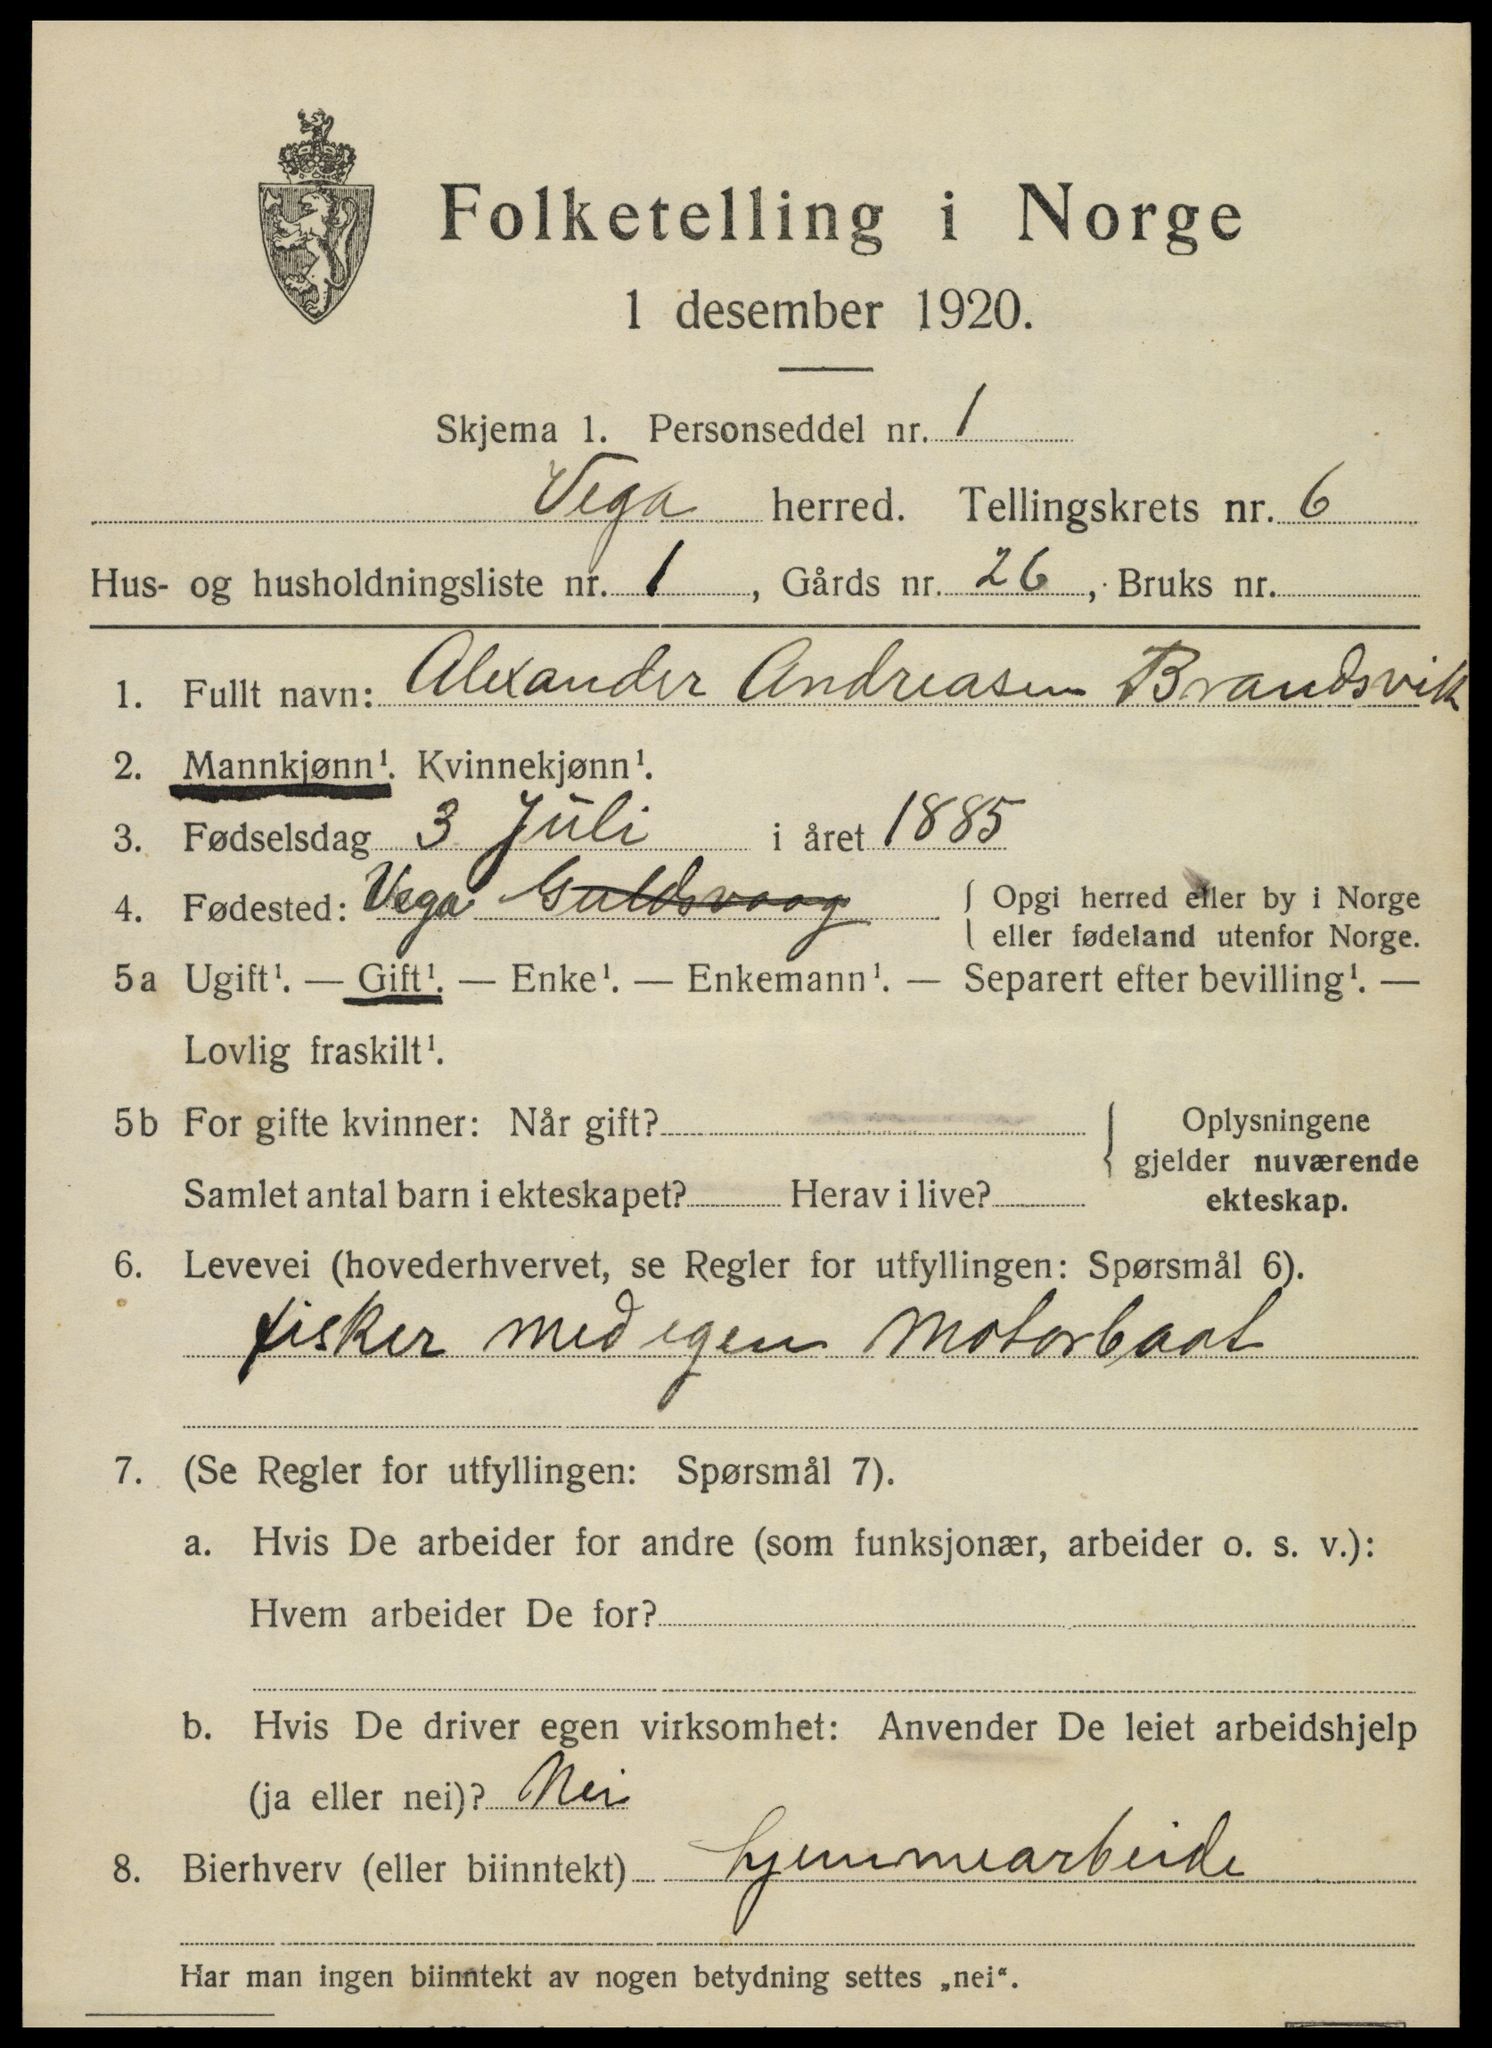 Folketelling i Norge
1 desember 1920.
Skjema 1. Personseddel nr. 1
Vega herred. Tellingskrets nr. 6
Hus- og husholdningsliste nr. 1, Gårds nr. 26, Bruks nr.
1. Fullt navn: Alexander Andreasen Brandsvik
2. Mannkjønn¹. Kvinnekjønn¹.
3. Fødselsdag 3 Juli i året 1885
4. Fødested: Vega Guldsvaag { Opgi herred eller by i Norge
eller fødeland utenfor Norge.
5a Ugift¹. — Gift¹. — Enke¹. — Enkemann¹. — Separert efter bevilling¹. —
Lovlig fraskilt¹.
5b For gifte kvinner: Når gift? { Oplysningene
gjelder nuværende
Samlet antal barn i ekteskapet? Herav i live? ekteskap.
6. Levevei (hovederhvervet, se Regler for utfyllingen: Spørsmål 6).
fisker med egen Motorbaat
7. (Se Regler for utfyllingen: Spørsmål 7).
a. Hvis De arbeider for andre (som funksjonær, arbeider o. s. v.):
Hvem arbeider De for?
b. Hvis De driver egen virksomhet: Anvender De leiet arbeidshjelp
(ja eller nei)? Nei
8. Bierhverv (eller biinntekt) hjemmearbeide
Har man ingen biinntekt av nogen betydning settes „nei“.